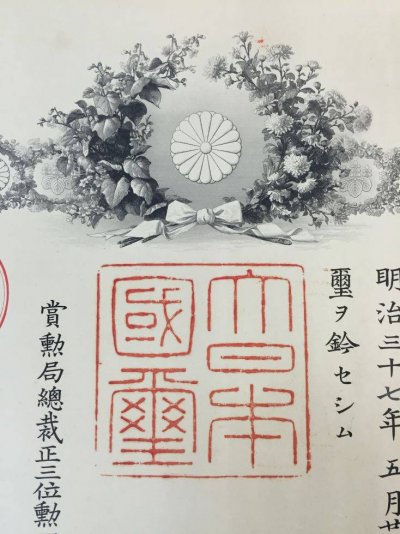 明治三十七年五月廿
璽ヲ鈐セシム
大日本
國璽
賞勲局總裁正三位勲